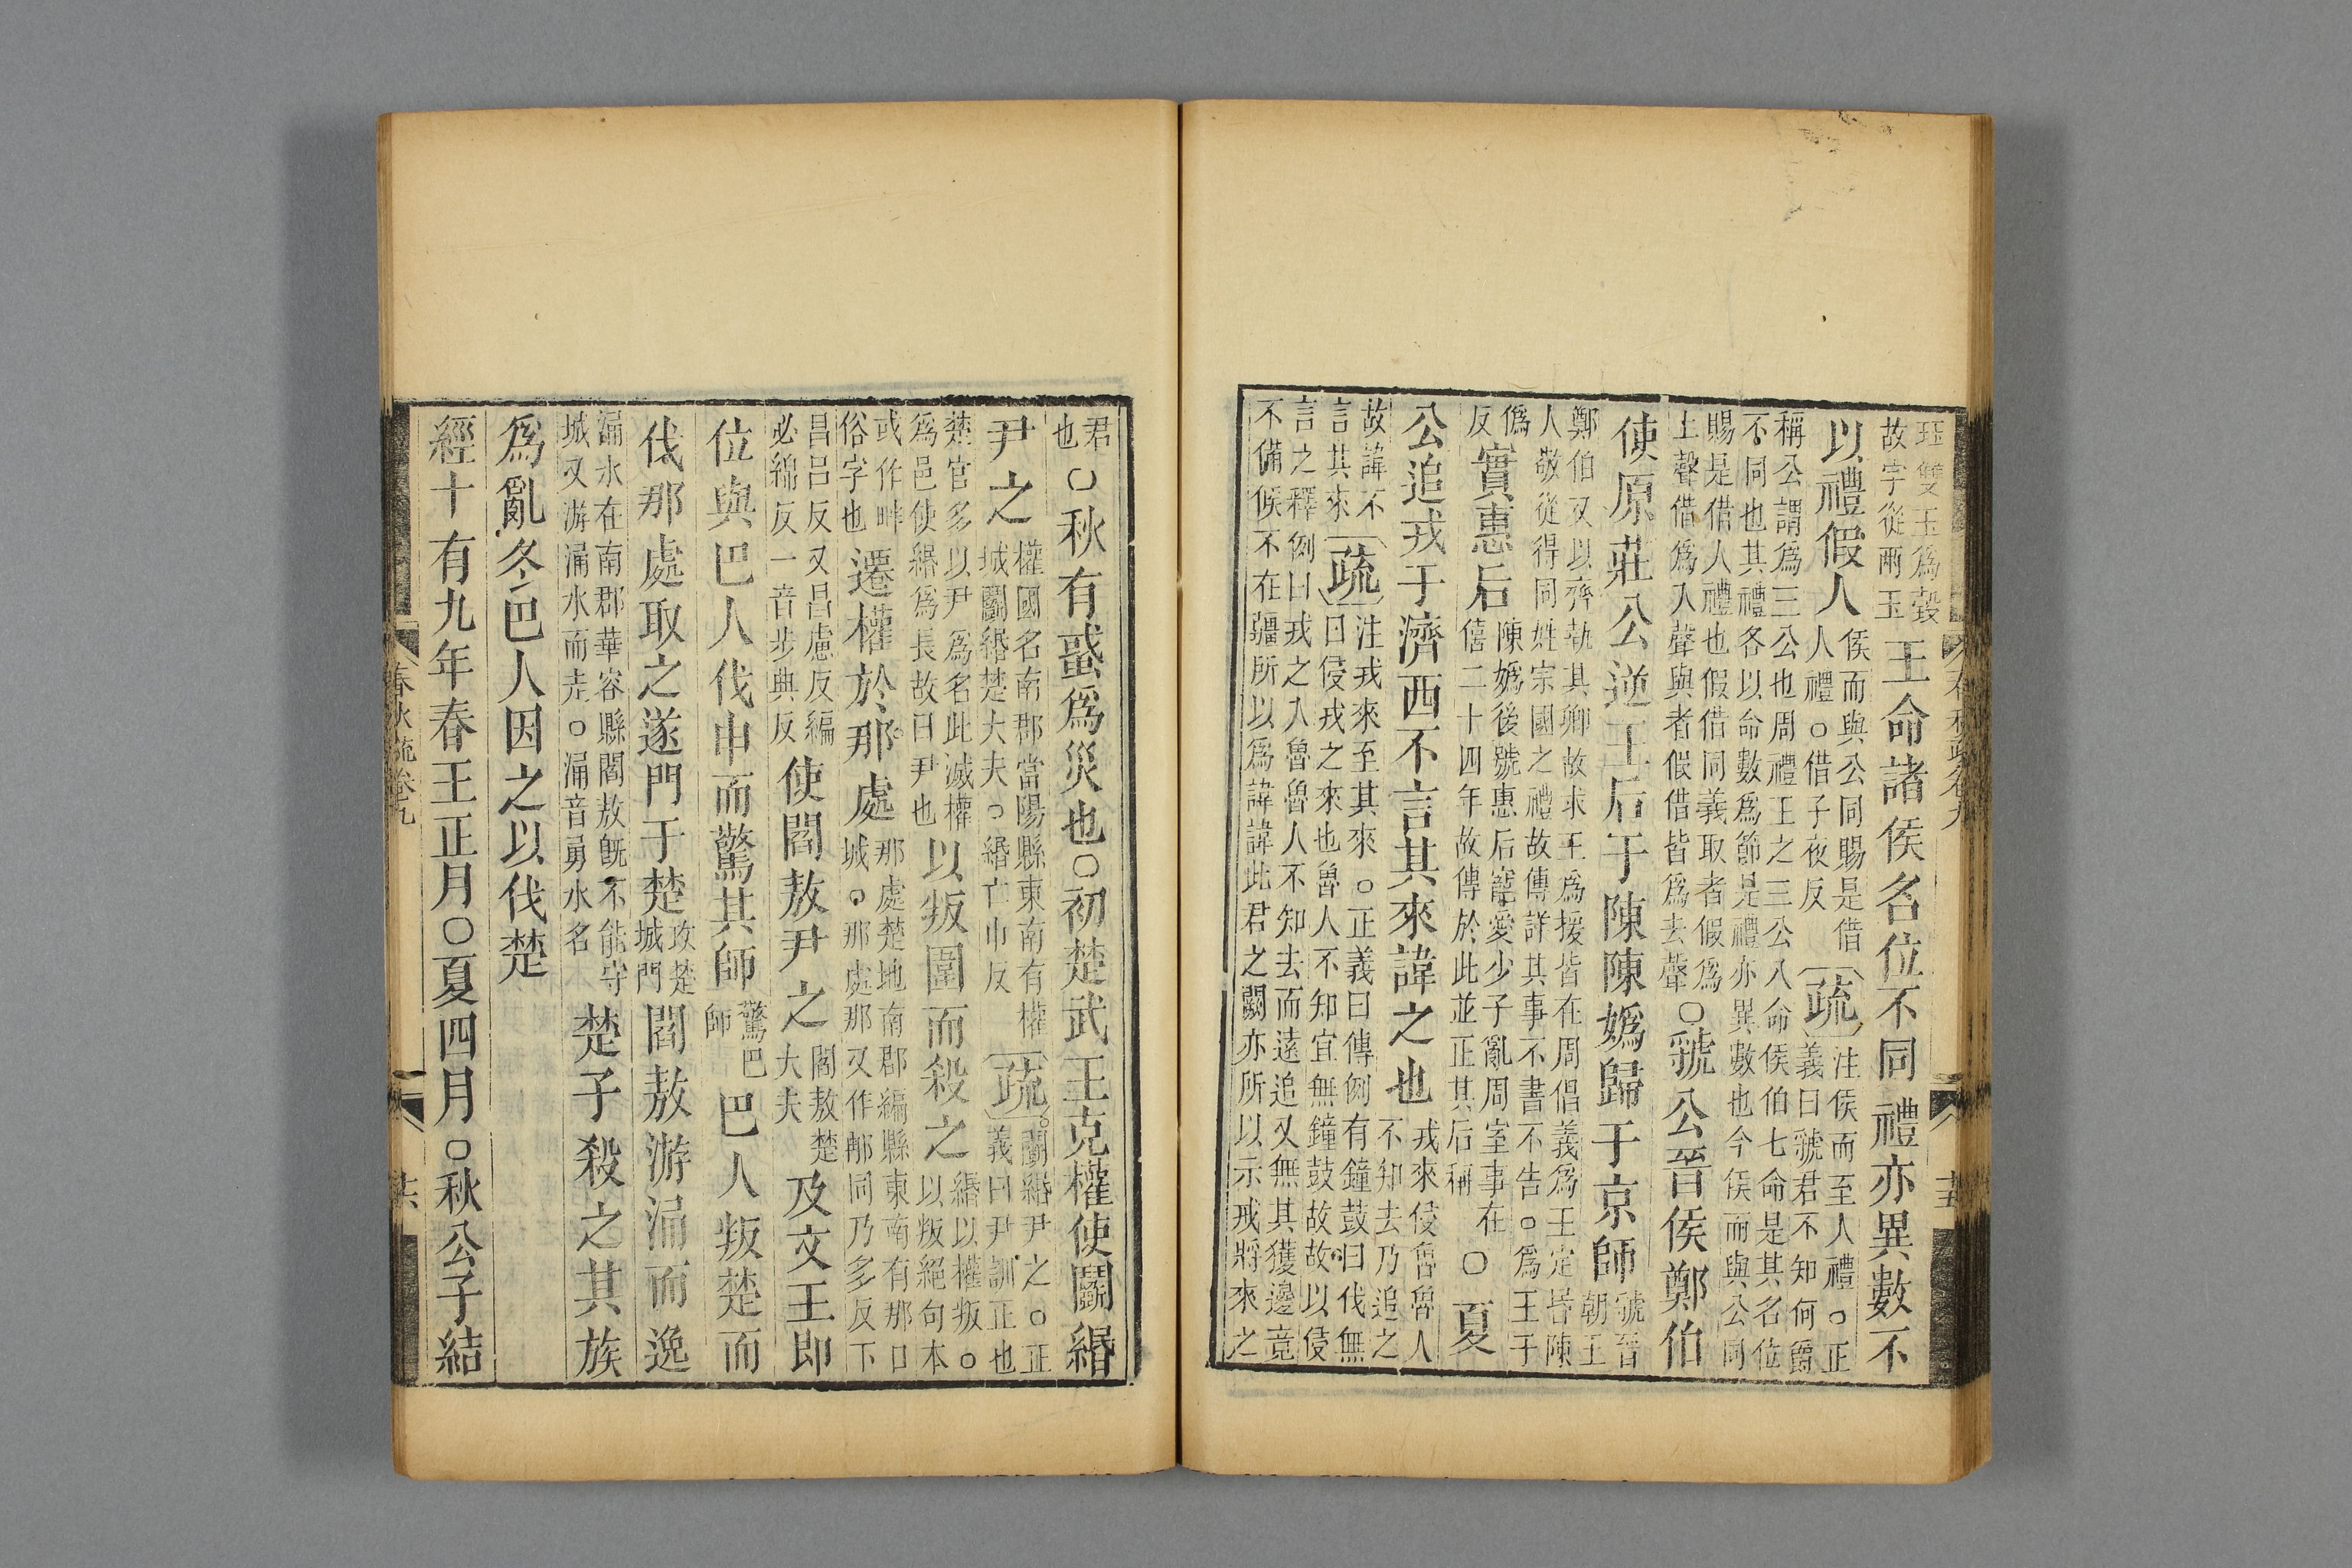 珏雙玉爲瑴
故字從兩玉
王命諸侯名位不同禮亦異數不
以禮假人
侯而與公同賜是借
人禮○借子夜反
疏
注侯而至人禮○正
義曰虢君不知何爵
稱公謂爲三公也周禮王之三公八命侯伯七命是其名位
不同也其禮各以命數爲節是禮亦異數也今侯而與公同
賜是借人禮也假借同義取者假爲
上聲借爲入聲與者假借皆爲去聲
○虢公晉侯鄭伯
使原莊公逆王后于陳陳媯歸于京師
虢晉
朝王
鄭伯又以齊執其卿故求王爲援皆在周倡義爲王定昏陳
人敬從得同姓宗國之禮故傳詳其事不書不告○爲王于
僞
反
實惠后
陳媯後號惠后寵愛少子亂周室事在
僖二十四年故傳於此並正其后稱
○夏
公追戎于濟西不言其來諱之也
戎來侵魯魯人
不知去乃追之
故諱不
言其來
疏
注戎來至其來○正義曰傳例有鐘鼓曰伐無
曰侵戎之來也魯人不知宜無鐘鼓故故以侵
言之釋例曰戎之入魯魯人不知去而遠追又無其獲邊竟
不備候不在疆所以爲諱諱此君之闕亦所以示戒將來之
春秋疏卷九
十五
君
也
○秋有蜮爲災也○初楚武王克權使鬬緡
尹之
權國名南郡當陽縣東南有權
城鬬緡楚大夫○緡亡巾反
疏
鬬緡尹之○正
義曰尹訓正也
楚官多以尹爲名此滅權
爲邑使緡爲長故曰尹也
以叛圍而殺之
緡以權叛○
以叛絕句本
或作畔
俗字也
遷權於那處
那處楚地南郡編縣東南有那口
城○那處那又作䢼同乃多反下
昌呂反又昌慮反編
必綿反一音步典反
使閻敖尹之
閻敖楚
大夫
及文王即
位與巴人伐申而驚其師
驚巴
師
巴人叛楚而
伐那處取之遂門于楚
攻楚
城門
閻敖游涌而逸
涌水在南郡華容縣閻敖旣不能守
城又游涌水而走○涌音勇水名
楚子殺之其族
爲亂冬巴人因之以伐楚
經十有九年春王正月○夏四月○秋公子結
春秋疏卷九
十六